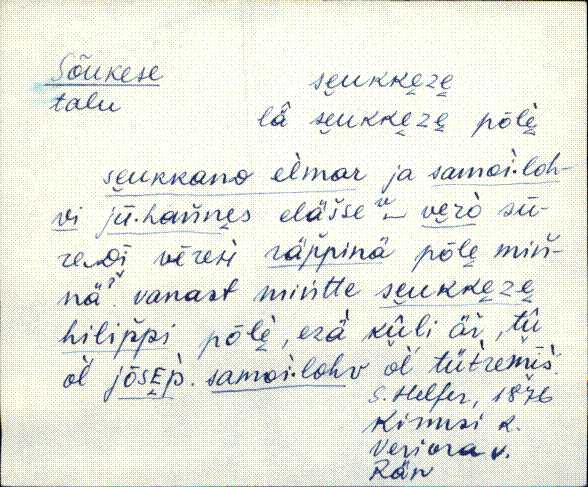 Sõukese
talu
se̮ukke̮ze̮
lǟ se̮ukke̮ze̮ pōlè̮
se̮ukkano elmar ja samoi·loh-
vi jü·hańnes eläšse ve̮rò sū-
re·di vēresì räppinä pōle̮ miń-
nä vanast mińtte se̮ukke̮ze̮
hilippi pōlè̮, ezä kūli är, tū
ol̀ jōsep̀. samoi·lohv ol̀ tütremīs̀
S. Helfer, 1876
Kirmsi k.
Veriora v.
Rän